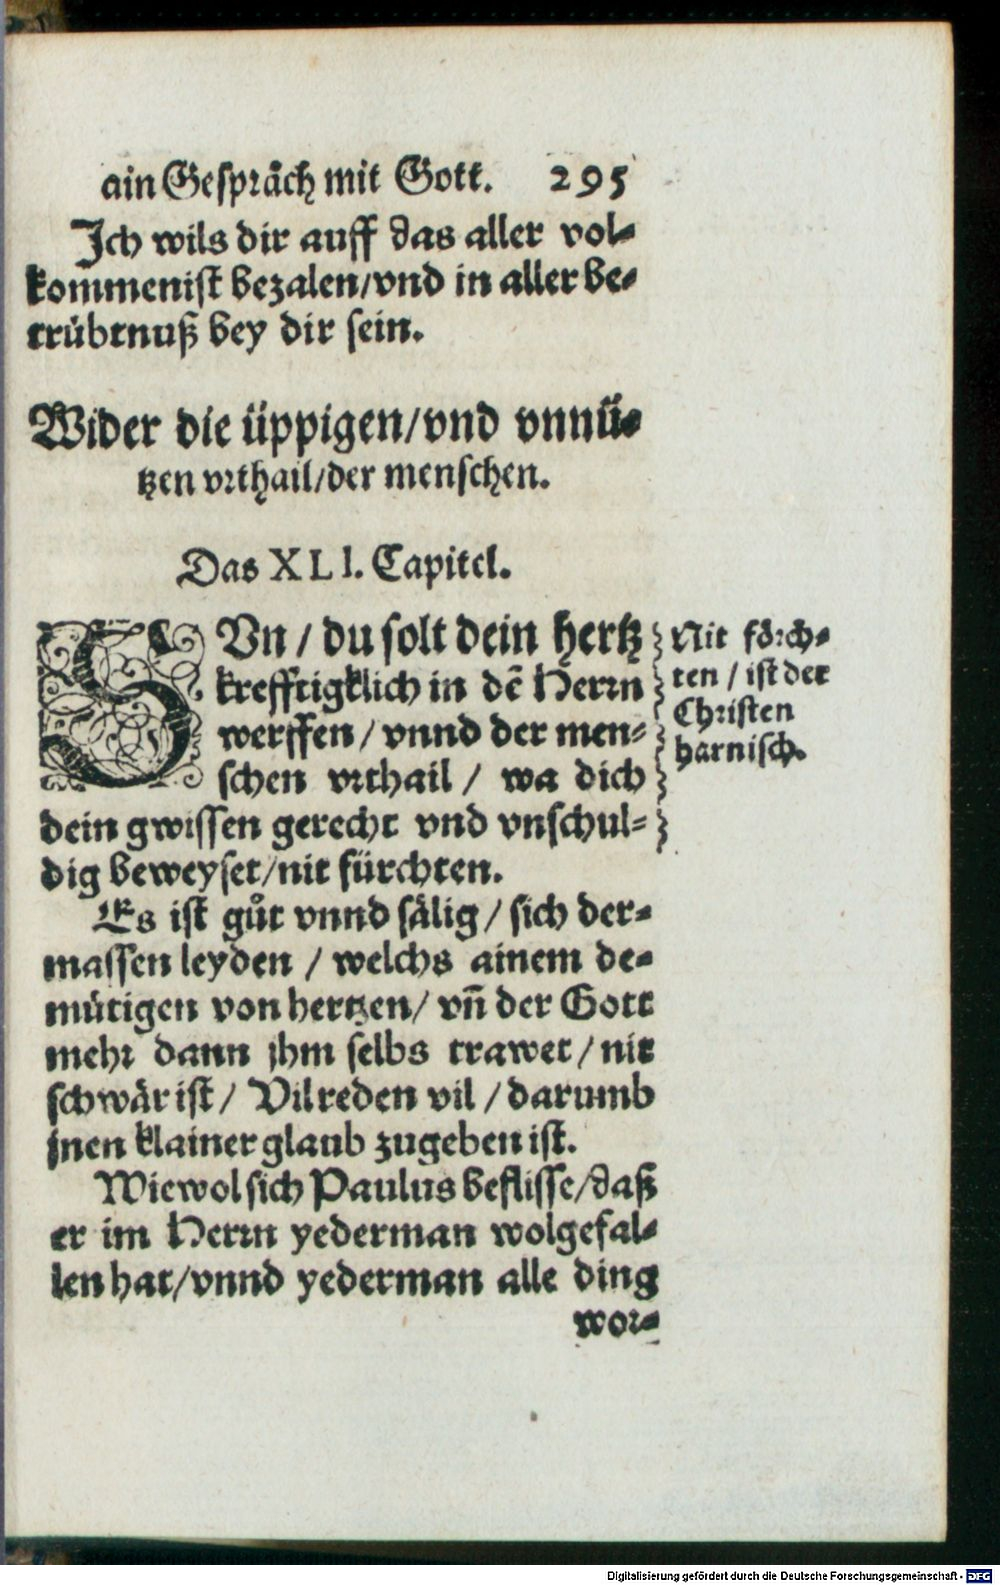 ain Gespräch mit Gott. 295
Ich wils dir auff das aller vol-
kommenist bezalen/vnd in aller be-
trübtnuß bey dir sein.
Wider die üppigen/vnd vnnü-
tzen vrthail/der menschen.
Das XLI. Capitel.
SVn / du solt dein hertz
krefftigklich in dē Herrn
werffen / vnnd der men-
schen vrthail / wa dich
dein gwissen gerecht vnd vnschul-
dig beweyset/nit fürchten.
Nit förch-
ten / ist der
Christen
harnisch.
Es ist gůt vnnd sälig / sich der-
massen leyden / welchs ainem de-
mütigen von hertzen/ vñ der Gott
mehr dann jhm selbs trawet / nit
schwär ist / Vil reden vil / darumb
jnen klainer glaub zugeben ist.
Wiewol sich Paulus beflisse/daß
er im Herrn yederman wolgefal-
len hat/vnnd yederman alle ding
wor-
Digitalisierung gefördert durch die Deutsche Forschungsgemeinschaft - DFG